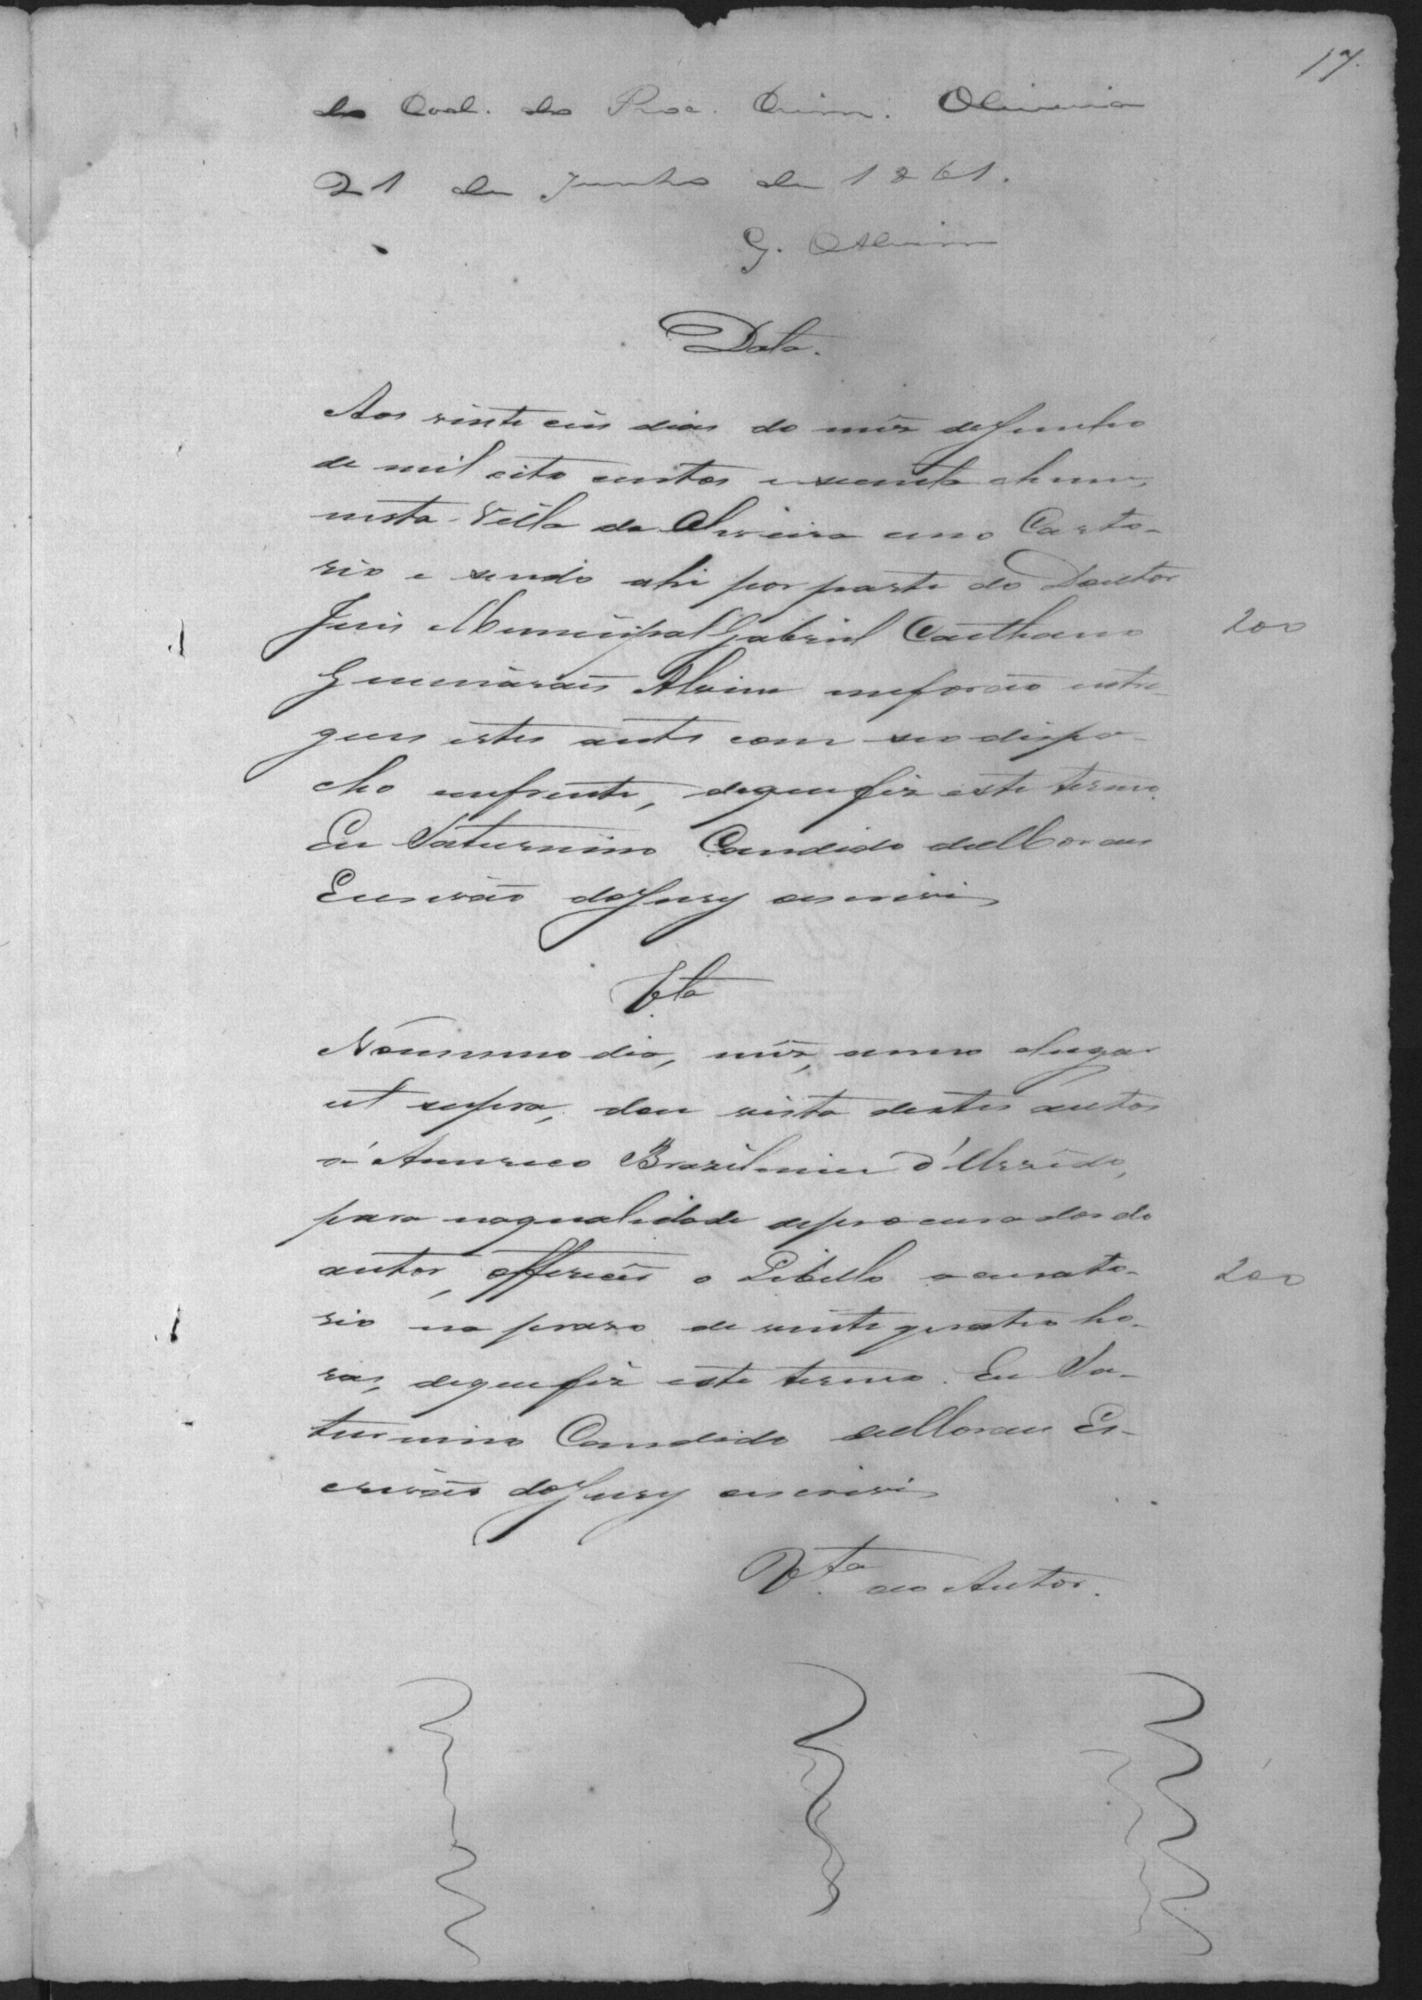 17.
do Cod. do Proc. Crim. Oliveira
21 de Junho de 1861.
G. Alvim
Data.
Aos vinte eúm dias do mêz deJunho
de mil oito centos e secenta ehum,
nesta Villa de Oliveira emo Carto-
rio e sendo ahi por parte do Doutor
Juis Municipal Gabriel Caethano
200
Guimarães Alvim meforão entre-
gues estes autos com seo dispa-
cho emfrente, dequefiz este termo.
Eu Saturnino Candido deMoraes
Escrivão doJury escrevi
Vta
Nomesmo dia, mêz, anno elugar
ut supra, dou vista destes autos
a Americo Braziliense d'
para naqualidade deprocurador do
autor, offerecer o Libello accusato-
200
rio no prazo de vinte quatro ho-
ras, dequefiz este termo. Eu Sa-
turnino Candido deMoraes Es-
crivão doJury escrevi
Vta ao Autor.